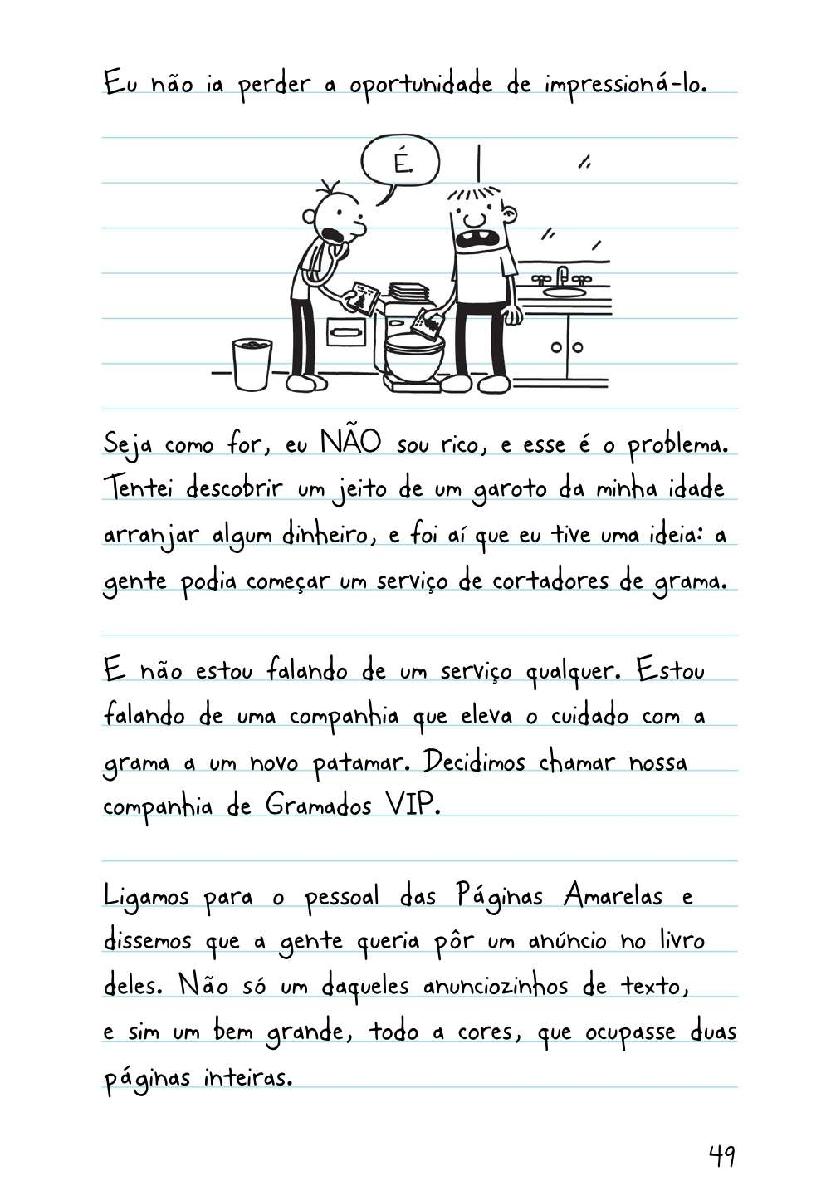 Eu não ia perder a oportunidade de impressioná-lo.
É
Seja como for, eu NÃO sou rico, e esse é o problema.
Tentei descobrir um jeito de um garoto da minha idade
arranjar algum dinheiro, e foi aí que eu tive uma ideia: a
gente podia começar um serviço de cortadores de grama.
E não estou falando de um serviço qualquer. Estou
falando de uma companhia que eleva o cuidado com a
grama a um novo patamar. Decidimos chamar nossa
companhia de Gramados VIP.
Ligamos para o pessoal das Páginas Amarelas e
dissemos que a gente queria pôr um anúncio no livro
deles. Não só um daqueles anunciozinhos de texto,
e sim um bem grande, todo a cores, que ocupasse duas
páginas inteiras.
49